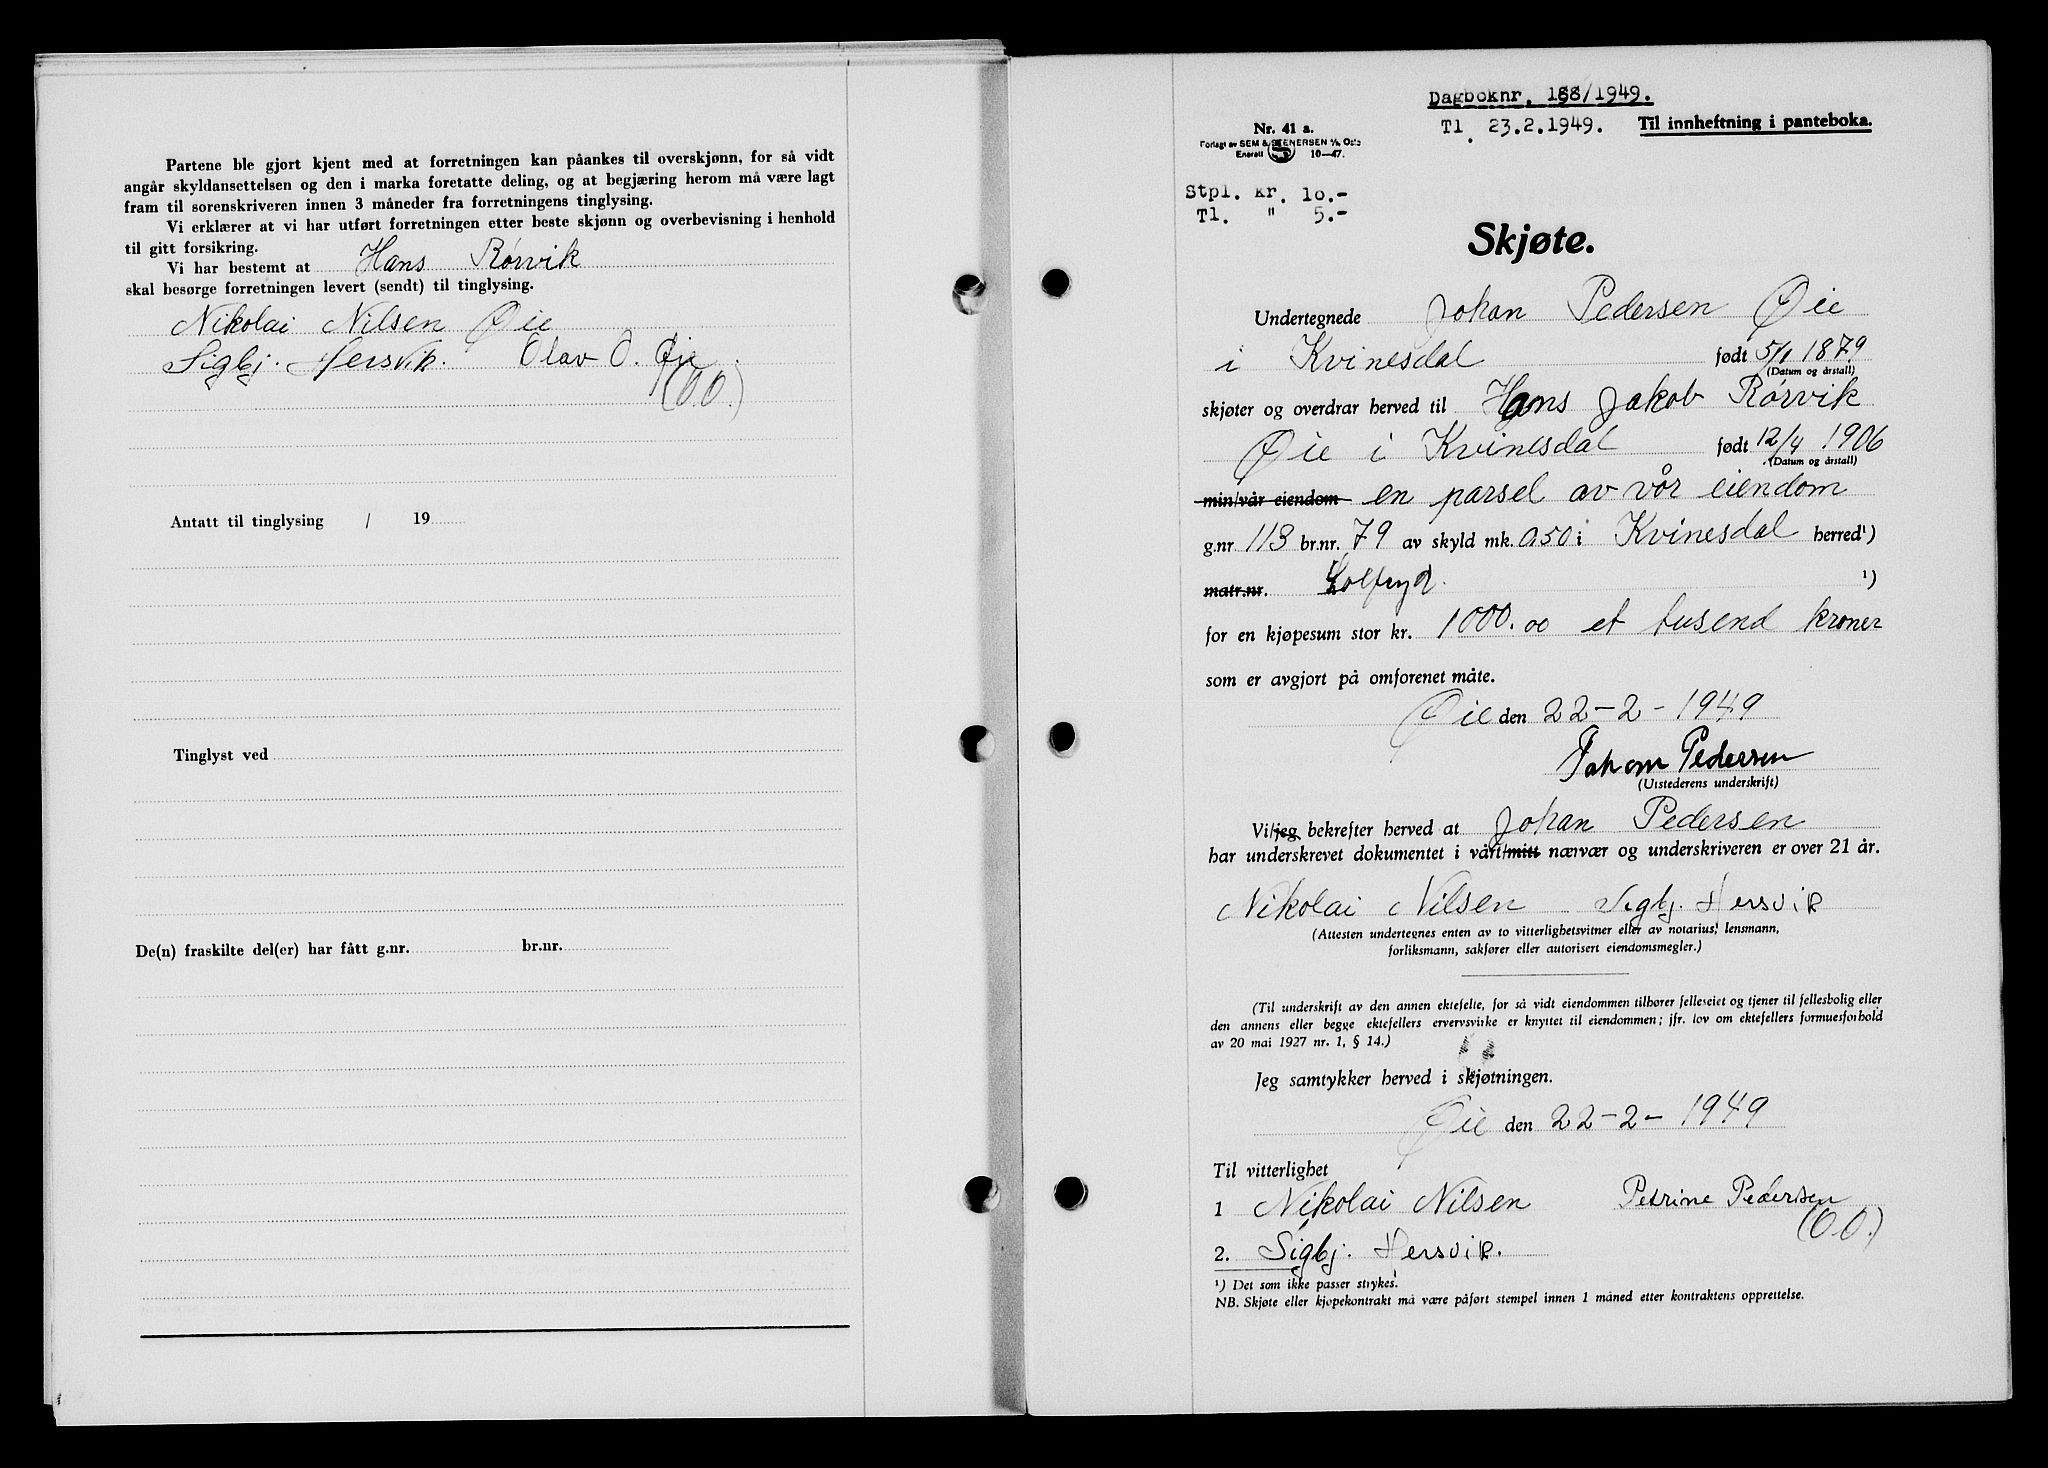 Partene ble gjort kjent med at forretningen kan påankes til overskjønn, for så vidt
angår skyldansettelsen og den i marka foretatte deling, og at begjæring herom må være lagt
fram til sorenskriveren innen 3 måneder fra forretningens tinglysing.
Vi erklærer at vi har utført forretningen etter beste skjønn og overbevisning i henhold
til gitt forsikring.
Vi har bestemt at Hans Rørvik
skal besørge forretningen levert (sendt) til tinglysing.
Nikolai Nilsen Øie
Sigbj. Hersvik. Olav O. Øie
(O.O.)
Antatt til tinglysing / 19
Tinglyst ved
De(n) fraskilte del(er) har fått g.nr. br.nr.
Dagboknr. 188/1949.
Nr. 41 a. Tl. 23.2.1949. Til innheftning i panteboka.
Forlagt av SEM & STENERSEN A/S, Oslo
Enerett 10—47.
Stpl. kr. 10.-
Tl. " 5.-
Skjøte.
Undertegnede Johan Pedersen Øie
i Kvinesdal født 5/1 1879
(Datum og årstall)
skjøter og overdrar herved til Hans Jakob Rørvik
Øie i Kvinesdal født 12/4 1906
(Datum og årstall)
min/vår eiendom en parsel av vår eiendom
g.nr. 113 br.nr. 79 av skyld mk. 0.50 i Kvinesdal herred¹)
matr.nr. ¹)
for en kjøpesum stor kr. 1000.00 et tusend kroner
som er avgjort på omforenet måte.
Øie den 22-2-1949
Johan Pedersen
(Utstederens underskrift)
Vi/jeg bekrefter herved at Johan Pedersen
har underskrevet dokumentet i vårt/mitt nærvær og underskriveren er over 21 år.
Nikolai Nilsen Sigbj. Hersvik
(Attesten undertegnes enten av to vitterlighetsvitner eller av notarius, lensmann,
forliksmann, sakfører eller autorisert eiendomsmegler.)
(Til underskrift av den annen ektefelte, for så vidt eiendommen tilhører felleseiet og tjener til fellesbolig eller
den annens eller begge ektefellers ervervsvirke er knyttet til eiendommen; jfr. lov om ektefellers formuesforhold
av 20 mai 1927 nr. 1, § 14.)
Jeg samtykker herved i skjøtningen.
Øie den 22-2-1949
Til vitterlighet
1 Nikolai Nilsen Petrine Pedersen
(O.O.)
2. Sigbj. Hersvik.
¹) Det som ikke passer strykes.
NB. Skjøte eller kjøpekontrakt må være påført stempel innen 1 måned etter kontraktens opprettelse.